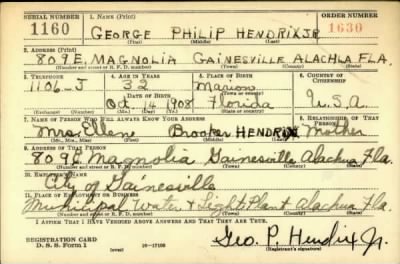 SERIAL NUMBER 1. NAME (Print) ORDER NUMBER
1160 GEORGE PHILIP HENDRIX JR 1630
(First) (Middle) (Last)
2. ADDRESS (Print)
809 E. MAGNOLIA GAINESVILLE ALACHUA FLA.
(Number and street or R. F. D. number) (Town) (County) (State)
3. TELEPHONE 4. AGE IN YEARS 5. PLACE OF BIRTH 6. COUNTRY OF CITIZENSHIP
1106-J 32 Marion
DATE OF BIRTH (Town or county)
Oct 14 1908 Florida U.S.A.
(Exchange) (No.) (Mo.) (Day) (Yr.) (State or country)
7. NAME OF PERSON WHO WILL ALWAYS KNOW YOUR ADDRESS 8. RELATIONSHIP OF THAT PERSON
Mrs Ellen Brooker HENDRIX Mother
(Mr., Mrs., Miss) (First) (Middle) (Last)
9. ADDRESS OF THAT PERSON
809 E Magnolia Gainesville Alachua Fla.
(Number and street or R. F. D. number) (Town) (County) (State)
10. EMPLOYER'S NAME
City of Gainesville
11. PLACE OF EMPLOYMENT OR BUSINESS
Municipal Water & Light Plant Alachua Fla.
(Number and street or R. F. D. number) (Town) (County) (State)
I AFFIRM THAT I HAVE VERIFIED ABOVE ANSWERS AND THAT THEY ARE TRUE.
REGISTRATION CARD
D. S. S. Form 1 (over) 16-17105 Geo. P. Hendrix Jr.
(Registrant's signature)